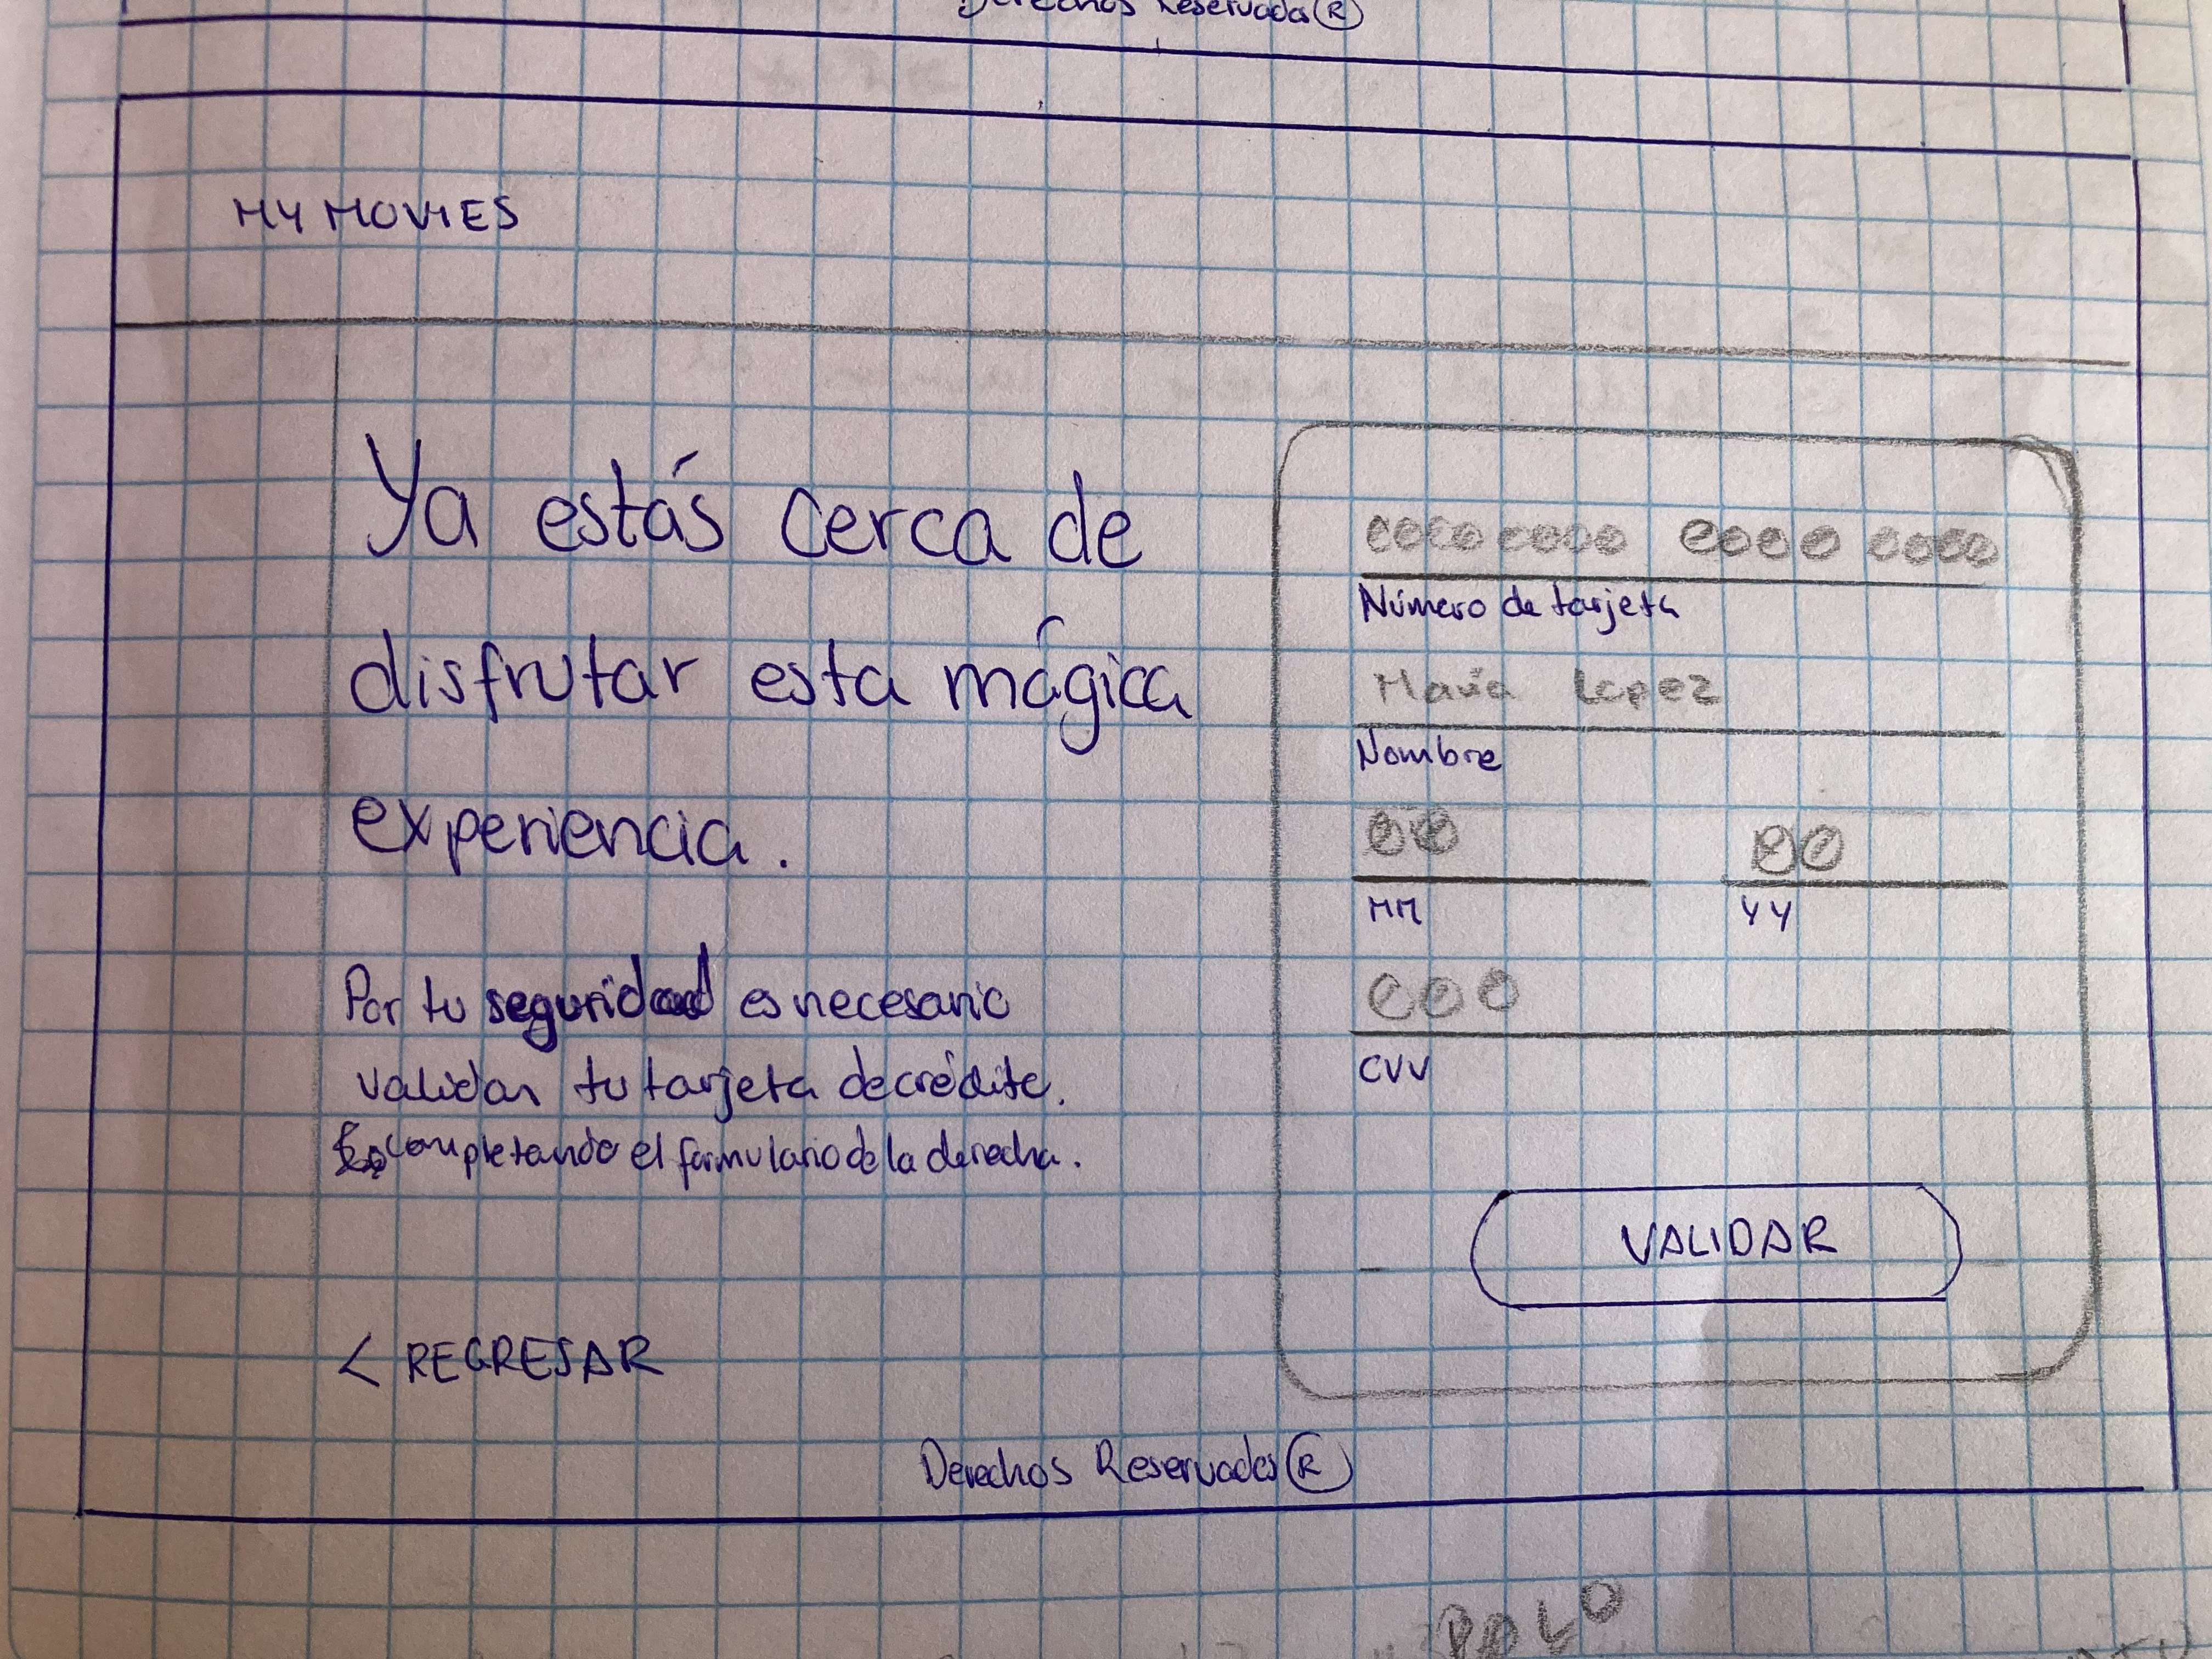 Derechos Reservados ®
MY MOVIES
Ya estás cerca de
disfrutar esta mágica
experiencia.
Por tu seguridad es necesario
validar tu tarjeta de crédito.
completando el formulario de la derecha.
< REGRESAR
0000 0000 0000 0000
Número de tarjeta
María Lopez
Nombre
00 00
MM YY
000
CVV
VALIDAR
Derechos Reservados ®